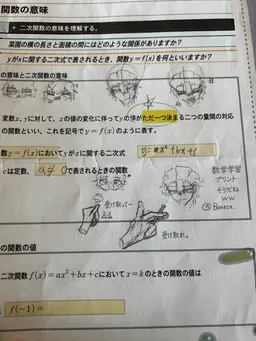 関数の意味
・ 二次関数の意味を理解する。
菜園の横の長さと面積の間にはどのような関係がありますか？
yがxに関する二次式で表されるとき、関数y=f(x)を何といいますか？
の意味と二次関数の意味
変数x, yに対して、xの値の変化に伴ってyの値がただ一つ決まる二つの量間の対応
の関数といい、これを記号でy = f(x)のように表す。
数y = f(x)においてyがxに関する二次式
cは定数、a≠0で表されるときの関数
数学学習
プリント
そうだね
ww
受け取って
受け取れ。
の関数の値
二次関数f(x) = ax² + bx + cにおいてx = kのときの関数の値は
f(−1) =